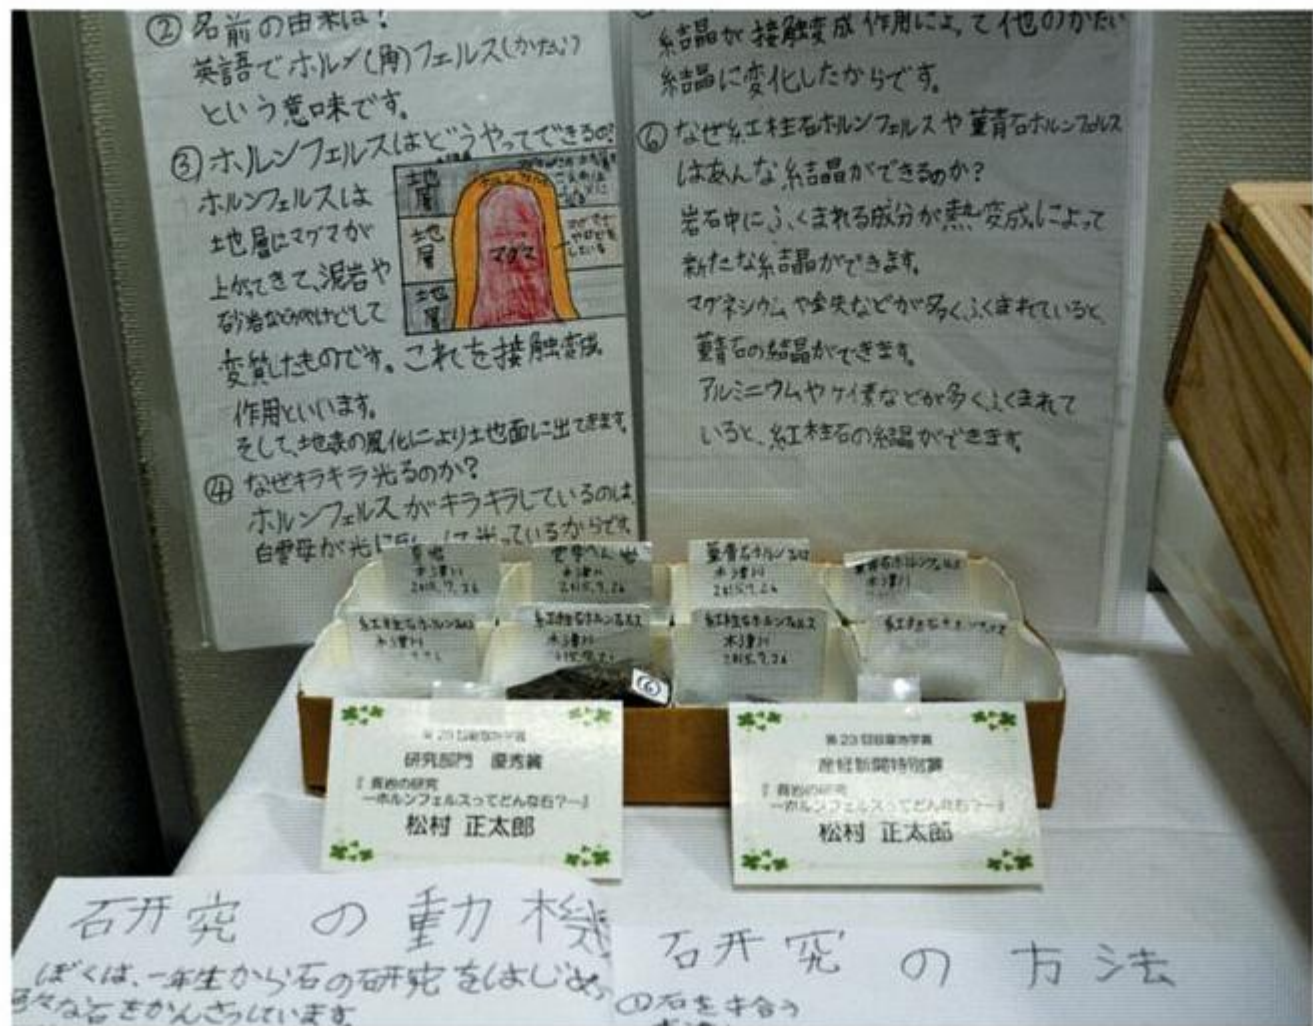 ②名前の由来は?
英語でホルン(角)フェルス(かたい)
という意味です。
③ホルンフェルスはどうやってできるの?
ホルンフェルスは
地層にマグマが
上がってきて、泥岩や
砂岩などがやけどして
変質したものです。これを接触変成
作用といいます。
そして、地表の風化により土地面に出てきます。
地層
地層
地層
マグマ
④なぜキラキラ光るのか?
ホルンフェルスがキラキラしているのは、
白雲母が光に
光っているからです。
結晶が接触変成作用によって他のかたい
結晶に変化したからです。
⑥なぜ紅柱石ホルンフェルスや菫青石ホルンフェルス
はあんな結晶ができるのか?
岩石中にふくまれる成分が熱変成によって
新たな結晶ができます。
マグネシウムや鉄などが多くふくまれていると、
菫青石の結晶ができます。
アルミニウムやケイ素などが多くふくまれて
いると、紅柱石の結晶ができます。
木津川
2015.7.26
木津川
2015.7.26
菫青石ホルンフェルス
木津川
2015.7.26
菫青石ホルンフェルス
木津川
紅柱石ホルンフェルス
木津川
紅柱石ホルンフェルス
木津川
紅柱石ホルンフェルス
木津川
2015.7.26
紅柱石ホルンフェルス
⑥
研究部門 優秀賞
『育岩の研究
―ホルンフェルスってどんな石?―』
松村 正太郎
産経新聞特別賞
―ホルンフェルスってどんな石?―』
松村 正太郎
研究の動機
ぼくは、一年生から石の研究をはじめ、
色々な石をかんさつしています。
研究の方法
①石を拾う